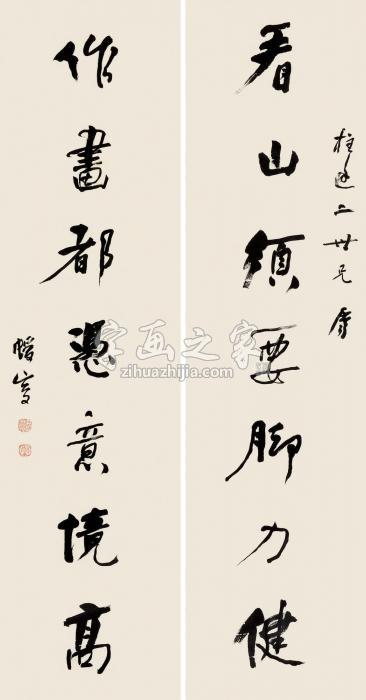 看山須要脚力健
作畫都憑意境高
字画之家
zihuazhijia.com